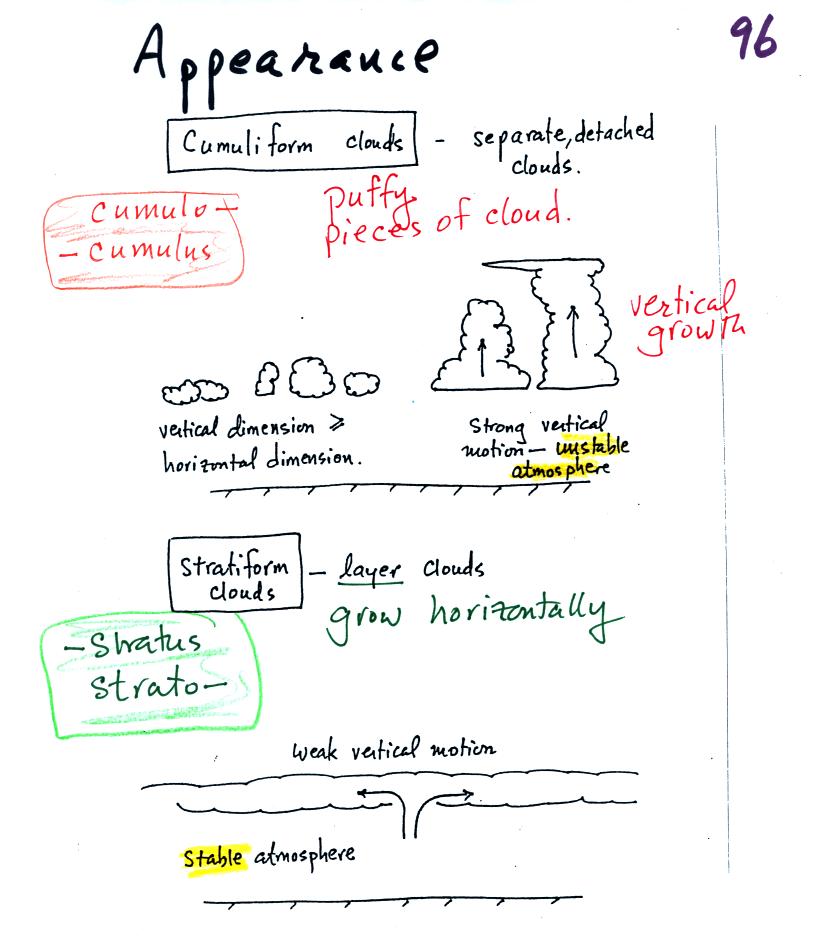 Appearance
96
Cumuliform clouds - separate, detached
clouds.
cumulo-
-cumulus
puffy
pieces of cloud.
vertical
growth
vertical dimension ≥
horizontal dimension.
Strong vertical
motion - unstable
atmosphere
Stratiform
clouds
- layer clouds
grow horizontally
-Stratus
Strato-
Weak vertical motion
Stable atmosphere